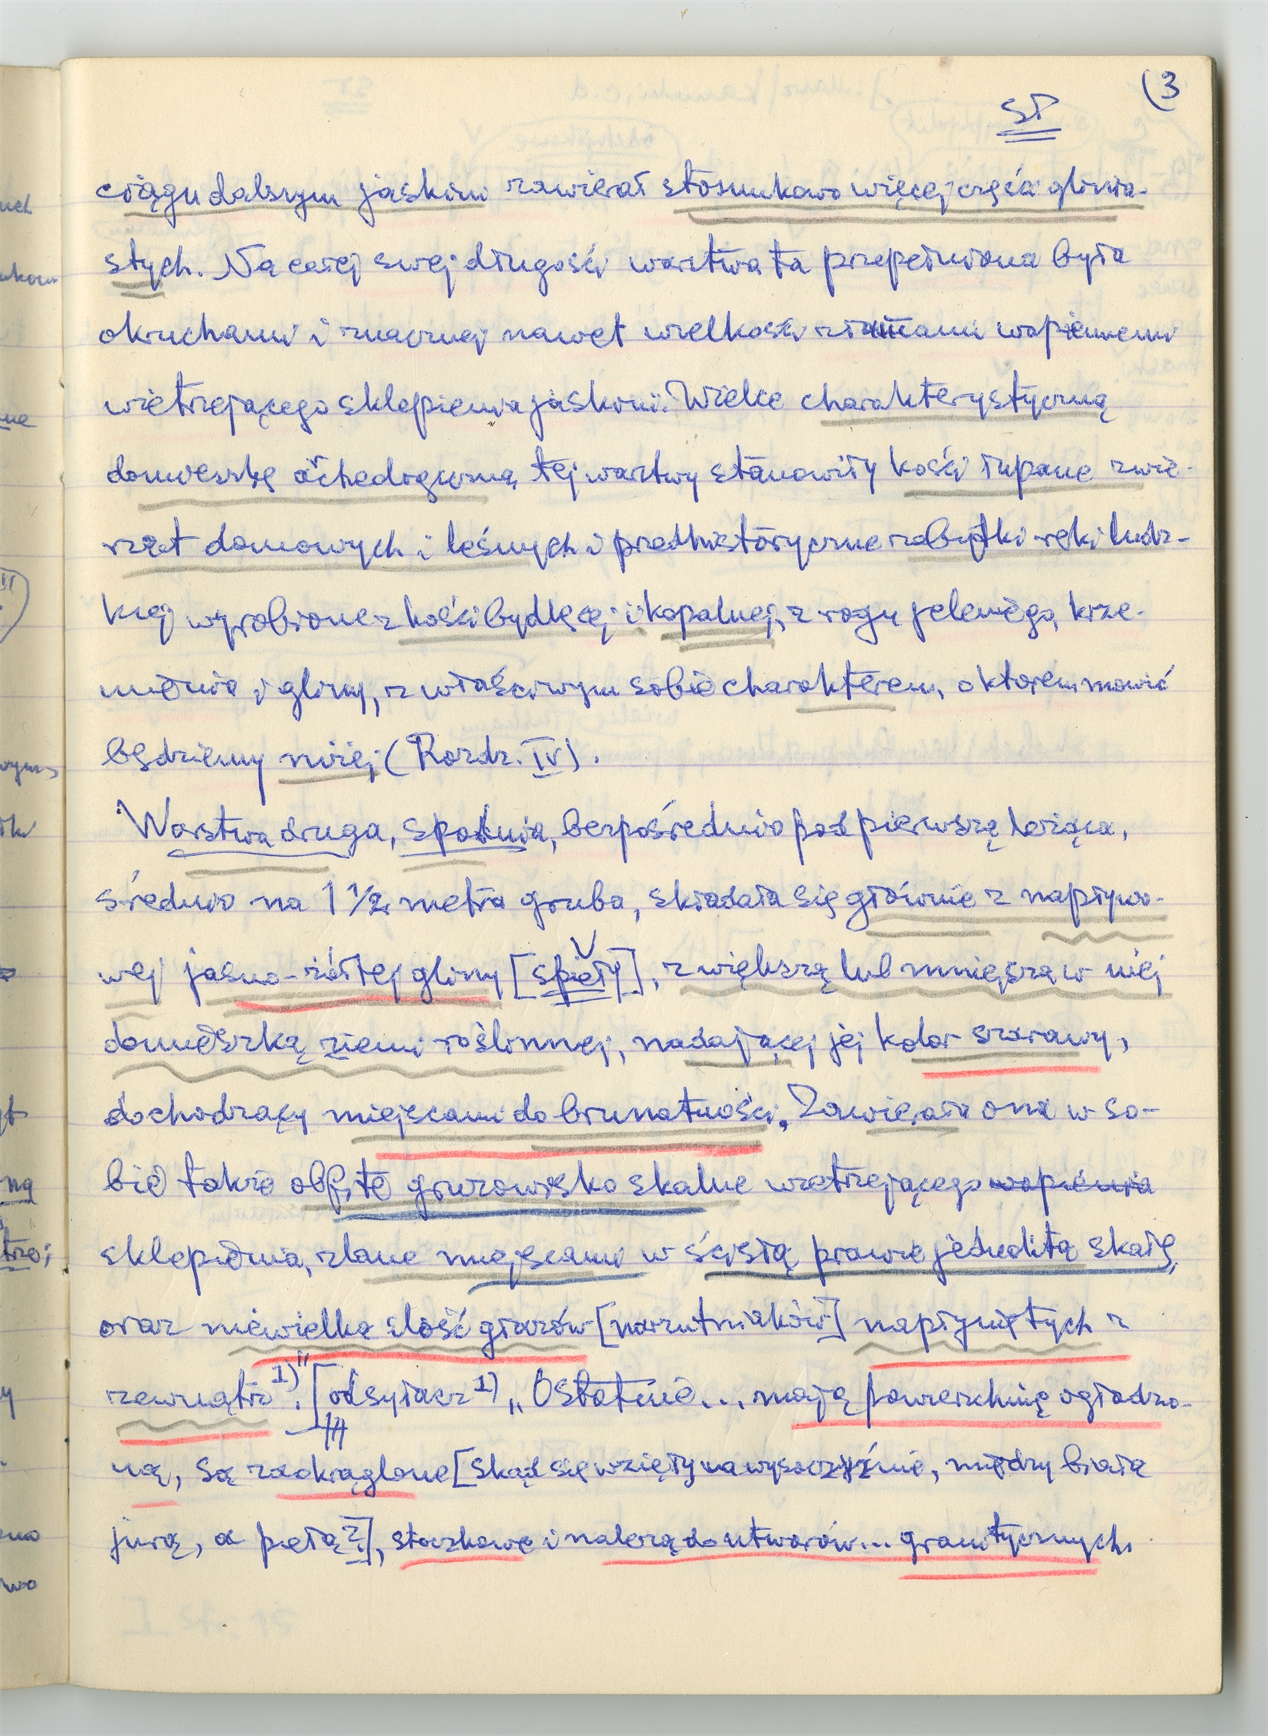 (3
ST
ciągu dalszym jaskini zawierał stosunkowo więcej części glinia-
stych. Na całej swej długości warstwa ta przepełniona była
okruchami i znacznej nawet wielkości złamami wapiennemi
wietrzejącego sklepienia jaskini. Wielce charakterystyczną
domieszkę archeologiczną tej warstwy stanowiły kości łupane zwie-
rząt domowych i leśnych i przedhistoryczne zabytki ręki ludz-
kiej wyrobione z kości bydlęcej i kopalnej, z rogu jeleniego, krze-
mienia i gliny, z właściwym sobie charakterem, o którem mówić
będziemy niżej (Rozdz. IV).
Warstwa druga, spodnia, bezpośrednio pod pierwszą leżąca,
średnio na 1 1/2 metra gruba, składała się głównie z napływo-
wej jasno-żółtej gliny [spęły], z większą lub mniejszą w niej
domieszką ziemi roślinnej, nadającej jej kolor szarawy,
dochodzący miejscami do brunatności. Zawierała ona w so-
bie także obfite gruzowisko skalne wietrzejącego wapienia
sklepienia, zlane miejscami w ścisłą prawie jednolitą skałę,
oraz niewielką ilość głazów [narzutniaków] napłyniętych z
zewnątrz 1)". [odsyłacz 1) „Ostatnie... mają powierzchnię ogładzo-
ną, są zaokrąglone [skąd się wzięły na wysoczyźnie, między białą
jurą, a pełą?], stoczkowe i należą do utworów... granitycznych.